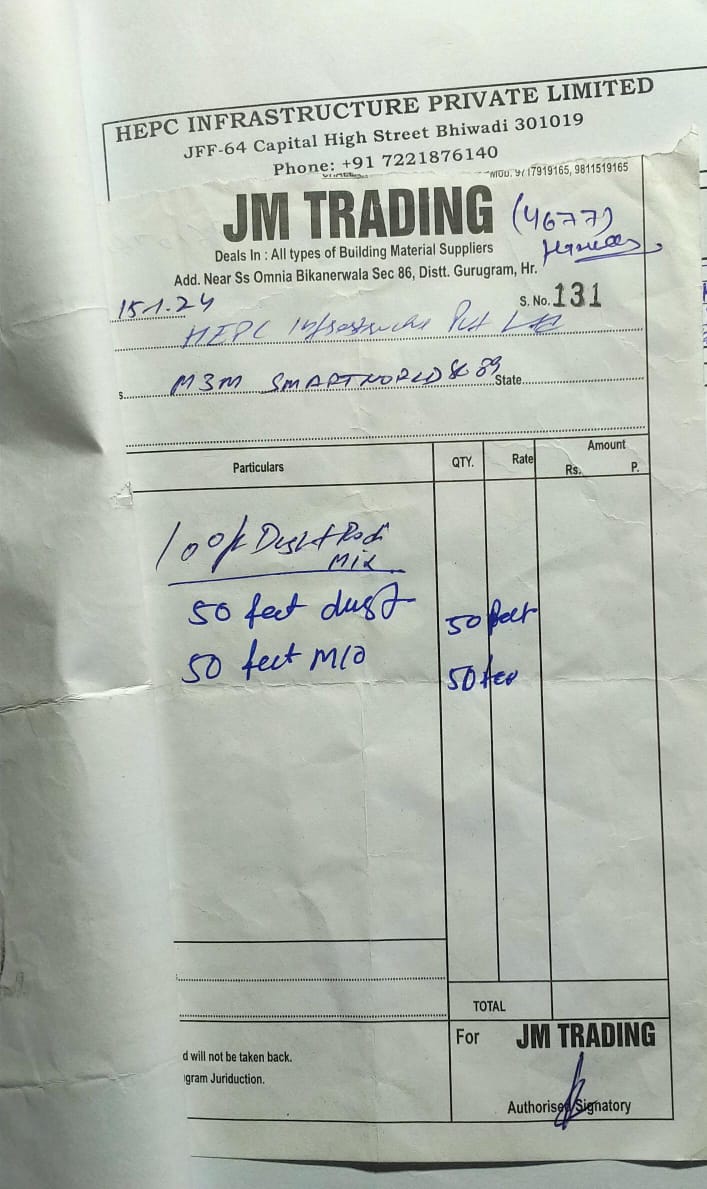 HEPC INFRASTRUCTURE PRIVATE LIMITED
JFF-64 Capital High Street Bhiwadi 301019
Phone: +91 7221876140
MOB. 9717919165, 9811519165
JM TRADING
(4677)
Deals In : All types of Building Material Suppliers
Add. Near Ss Omnia Bikanerwala Sec 86, Distt. Gurugram, Hr.
15.1.24
S. No. 131
HEPC Infrastructure Pvt Ltd
s. M3M SMARTWORLD Sec 89 State
Particulars QTY. Rate Amount
Rs. P.
100% Dust+Rodi
Mix
50 feet dust 50 feet
50 feet 50 fee
TOTAL
For JM TRADING
d will not be taken back.
gram Juriduction.
Authorised Signatory